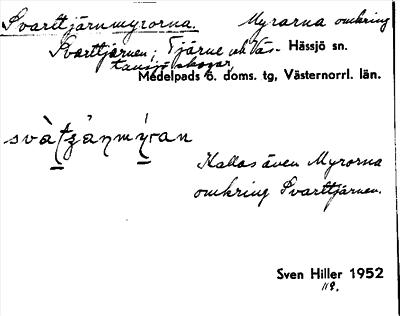 Svarttjärnmyrorna. Myrarna omkring
Svarttjärnen; Tjärne och Väs- Hässjö sn.
tansjö skogar,
Medelpads ö. doms. tg, Västernorrl. län.
Kallas även Myrorna
omkring Svarttjärnen.
Sven Hiller 1952